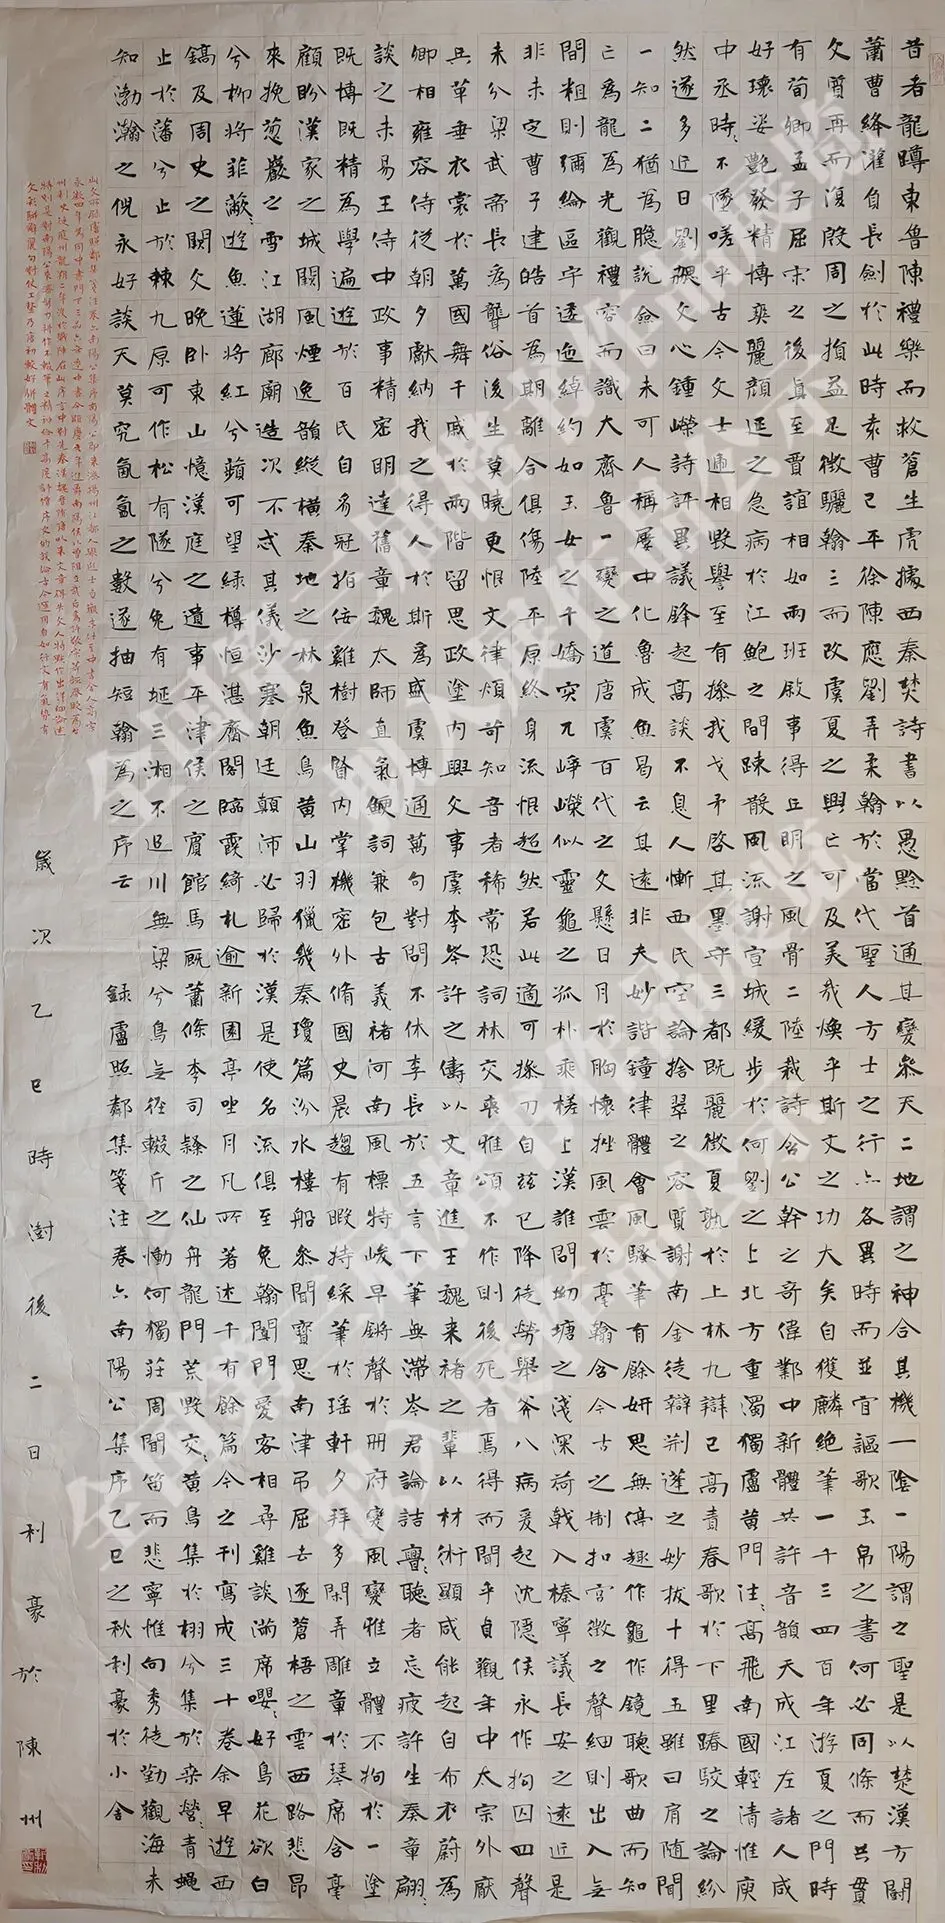 昔者龍蹲東魯陳禮樂而救蒼生虎據西秦焚詩書以愚黔首通其變叅天二地謂之神合其機一陰一陽謂之聖是以楚漢方鬭
蕭曹絳灌自長劍於此時袁曹已平徐陳應劉弄柔翰於當代聖人方士之行亦各異時而並宜謳歌玉帛之書何必同條而共貫
文質再而復殷周之損益足徵驪翰三而改虞夏之興亡可及美哉煥乎斯文之功大矣自獲麟絕筆一千三四百年游夏之門時
有荀卿孟子屈宋之後直至賈誼相如兩班敘事得丘明之風骨二陸裁詩含公幹之奇偉鄴中新體共許音韻天成江左諸人咸
好瓌姿艷發精博爽麗顏延之急病於江鮑之間疎散風流謝宣城緩步於何劉之上北方重濁獨盧黃門往〻高飛南國輕清惟庾
中丞時〻不墜嗟乎古今文士逓相毀譽至有操我戈矛啓其墨守三都既麗徵夏熟於上林九辯已高責春歌於下里踳駮之論紛
然遂多近日劉勰文心鍾嶸詩評異議鋒起高談不息人慚西氏空論捨翠之容質謝南金徒辯荆蓬之妙拔十得五雖曰肩隨聞
一知二猶為臆說僉曰未可人稱屢中化魯成魚曷云其遠非夫妙諧鐘律體會風騷筆有餘妍思無停趣作龜作鏡聽歌曲而知
亡為龍為光觀禮容而識大齊魯一變之道唐虞百代之文懸日月於胸懷挫風雲於毫翰含今古之制扣宮徵之聲細則出入無
間粗則彌綸區宇逶迤綽約如玉女之千嬌突兀崢嶸似靈龜之孤朴乘槎上漢誰問坳塘之淺深荷戟入榛寧議長安之遠近是
非未定曹子建皓首為期離合俱傷陸平原終身流恨超然若此適可操刀自茲已降徒勞舉斧八病爰起沈隱侯永作拘囚四聲
未分梁武帝長為聾俗後生莫曉更恨文律煩苛知音者稀常恐詞林交喪雅頌不作則後死者焉得而聞乎貞觀年中太宗外厭
兵革垂衣裳於萬國舞干戚於兩階留思政塗內興文事虞李岑許之儔以文章進王魏來褚之輩以材術顯咸能起自布衣蔚為
卿相雍容侍從朝夕獻納我之得人於斯為盛虞博通萬句對問不休李長於五言下筆無滯岑君論詰亹〻聽者忘疲許生奏章翩〻
談之未易王侍中政事精密明達舊章魏太師直氣鯁詞兼包古義褚河南風標特峻早鏘聲於冊府變風變雅立體不拘於一塗
既博既精為學遍遊於百氏自多冠指佞雞樹登賢內掌機密外脩國史晨趨有暇持綵筆於瑤軒夕拜多閑弄雕章於琴席含毫
顧盼漢家之城闕風煙逸韻縱橫秦地之林泉魚鳥黃山羽獵幾奏瓊篇汾水樓船叅聞寶思南津弔屈去逐蒼梧之雲西路悲昂
來挽葱巖之雪江湖廊廟造次不忒其儀沙塞朝廷顛沛必歸於漢是使名流俱至兔翰聞門愛客相尋雞談滿席嚶〻好鳥花欲白
兮柳將菲蔽〻遊魚蓮將紅兮蘋可望綠樽恒湛齋閣臨霞綺札逾新園亭坐月凡所著述千有餘篇今之刊寫成三十卷余早遊西
鎬及周史之闕文晚臥東山憶漢庭之遺事平津侯之賓館馬厩蕭條李司隸之仙舟龍門荒毀交〻黃鳥集於栩兮集於桑營〻青蠅
止於藩兮止於棘九原可作松有隧兮兔有埏三湘不追川無梁兮鳥無徑輟斤之慟何獨莊周聞笛而悲寧惟向秀徒勤觀海未
知渤瀚之俔永好談天莫究氤氳之數遂抽短翰為之序云 録盧照鄰集箋注卷六南陽公集序乙巳之秋利豪於小舍
歲次乙巳時澍後二日利豪於陳州